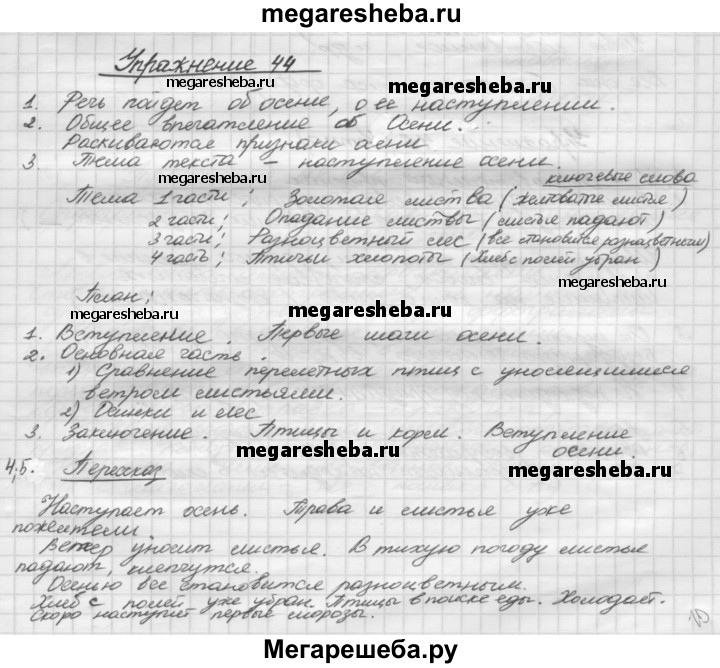 megaresheba.ru
Упражнение 44
megaresheba.ru
1. Речь пойдет об осене, о ее наступлении.
megaresheba.ru
2. Общее впечатление об Осени.
Раскиваются признаки осени
3. Тема текста – наступление осени.
ключевые слова
Тема 1 части; Золотая листва (желтоватые листья)
2 части; Опадание листвы (листья падают)
3 части; Разноцветный лес (все становится разноцветным)
4 часть; Птичьи хлопоты (Хлеб с полей убран)
megaresheba.ru
План;
megaresheba.ru
1. Вступление. Первые шаги осени.
2. Основная часть.
1) Сравнение перелетных птиц с уносящимися
ветром листьями.
2) Осинки и лес
3. Заключение. Птицы и корм. Вступление
осени.
megaresheba.ru
4,5. Пересказ
megaresheba.ru
Наступает осень. Трава и листья уже
пожелтели
Ветер уносит листья. В тихую погоду листья
падают,
Осенью все становится разноцветным.
Хлеб с полей уже убран. Птицы в поиске еды. Холодает.
Скоро наступят первые морозы.
Мегарешеба.ру